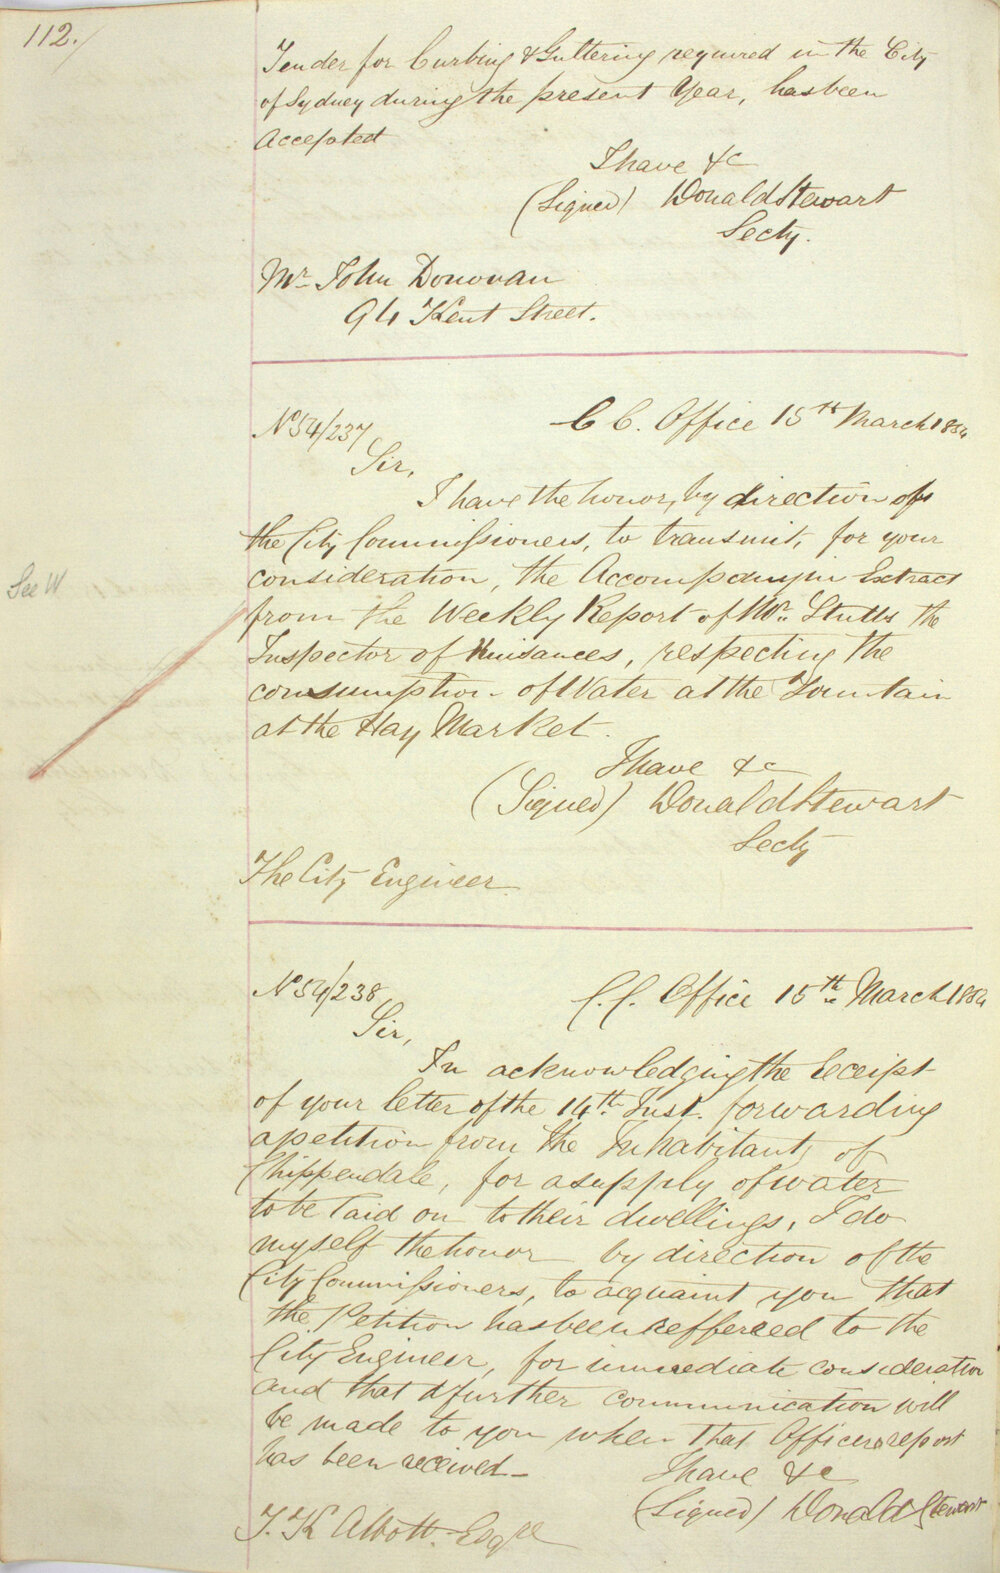 112.
Tender for Curbing & Guttering required in the City
of Sydney during the present Year, has been
Accepted
I have &c
(Signed) Donald Stewart
Secty.
Mr. John Donovan
94 Kent Street.
No 54/237
C C. Office 15th March 1854
Sir,
I have the honor, by direction of
the City Commissioners, to transmit, for your
consideration, the Accompanyin Extract
See W
from the Weekly Report of Mr. Stutts the
Inspector of Nuisances, respecting the
consumption of Water at the Fountain
at the Hay Market.
I have &c
(Signed) Donald Stewart
Secty
The City Engineer
No 54/238
C. C. Office 15th March 1854
Sir,
In acknowledging the receipt
of your letter of the 14th Inst. forwarding
a petition from the Inhabitants of
Chippendale, for a supply of water
to be laid on to their dwellings, I do
myself the honor by direction of the
City Commissioners, to acquaint you that
the Petition has been reffereed to the
City Engineer, for immediate consideration
and that a further communication will
be made to you when that Officers report
has been received –
I have &c
(Signed) Donald Stewart
T. K Abbott Esqre